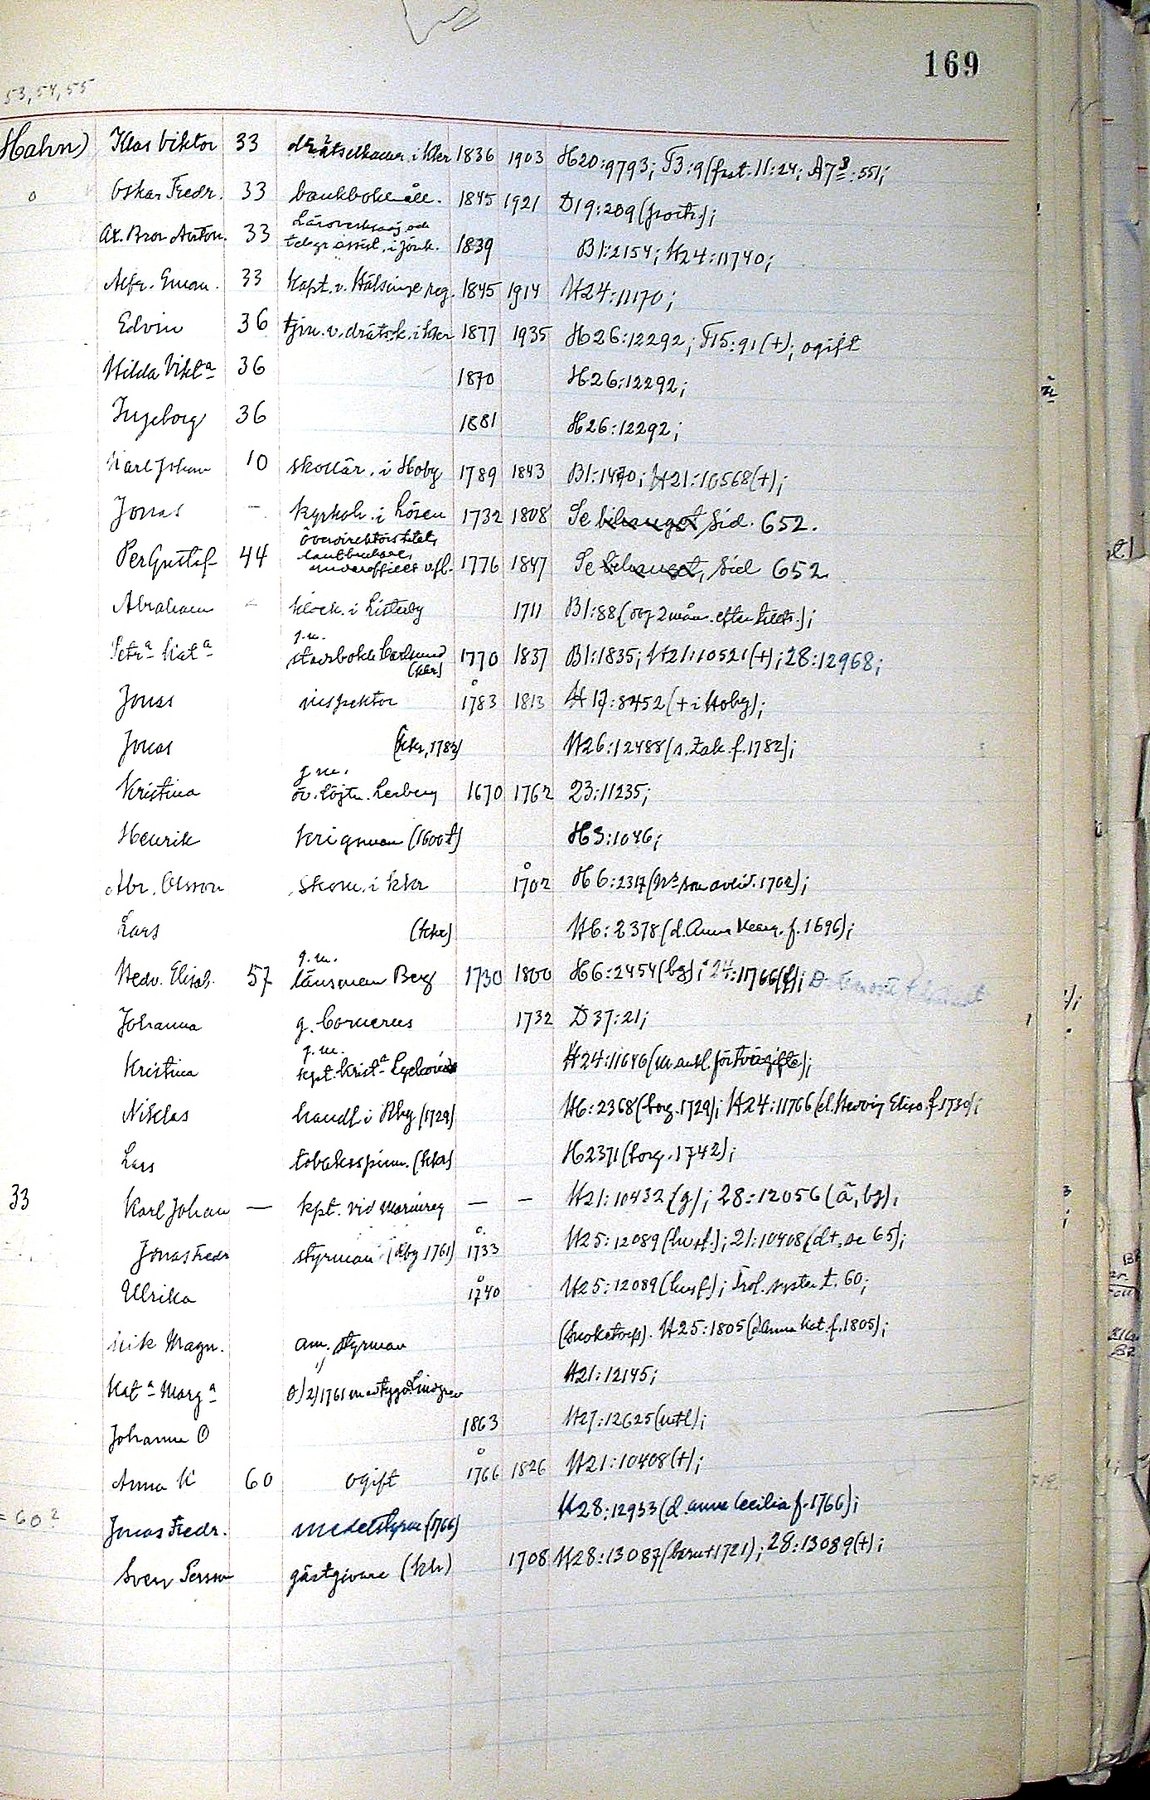 169
53, 54, 55
Hahn) Klas Viktor 33 drätselkamr. i kkr 1836 1903 H20:9793; T3:9 (frst. 11:24; A7 :551;
Oskar Fredr. 33 bankbokhåll. 1845 1921 D19:209 (portr.);
Ax. Bror Anton. 33 Läroverksadj. och
telegr. assist. i Jönk. 1839 B1:2154; H24:11740;
Alfr. Eman. 33 kapt. v. Hälsinge reg. 1845 1914 H24:11170;
Edvin 36 tjm. v. drätsk. i kkr 1877 1935 H26:12292; T15:91 (+); ogift
Hilda Vikt a 36 1870 H26:12292;
Ingeborg 36 1881 H26:12292;
Karl Johan 10 skollär. i Hoby 1789 1843 B1:1470; H21:10568 (+);
Jonas – kyrkoh. i Lösen 1732 1808 Se bihanget, Sid. 652.
Per Gustaf 44 överdirektörs titel,
lantbrukare,
underofficer v fl. 1776 1847 Se bihanget, Sid 652
Abraham – klock. i Listerby 1711 B1:88 (dog 2 mån. efter tilltr.);
Petr a Kat a g. m.
storbokh. Carlsund
(kkr) 1770 1837 B1:1835; H21:10521 (+); 28:12968;
Jonas inspektor 1783 1813 H17:8452 (+ i Hoby);
Jonas (kkr, 1782) H26:12488 (s. Zak. f. 1782);
Kristina g m.
öv. löjtn. Lesberg 1670 1762 23:11235;
Henrik krigsman (1600 t) H3:1046;
Abr. Olsson skom. i kkr 1702 H6:2317 (N:s son avled. 1702);
Lars (kkr) H6:2378 (d. Anna Marg. f. 1696);
Hedv. Elisab. 57 g. m.
länsman Berg 1730 1800 H6:2454 (bg); 24:11766 (f);
Johanna g. Cornerus 1732 D37:21;
Kristina g. m.
kpt. Krist a H24:11646 (m anl. för tvegifte);
Niklas handl. i Rby (1729) H6:2368 (borg. 1729); H24:11766 (d. Hedvig Elisa f. 1730);
Lars tobaksspinn. (kkr) H2371 (borg. 1742);
33 Karl Johan — kpt. vid marinreg — – H21:10432 (g); 28:12056 (ä, bg);
Jonas Fredr styrman (Rby 1761) 1733 H25:12089 (husf.); 21:10408 (dt. se 65);
Ulrika 1740 H25:12089 (husf); Trol. syster t. 60;
Erik Magn. am. styrman H25:1805 (d Anna Kat. f. 1805);
Kat a Marg a 8/2 1761 m Lindgren H21:12145;
Johanna O 1863 H27:12625 (utfl);
Anna K 60 ogift 1766 1826 H21:10408 (+);
= 60? Jonas Fredr. medelstyrm (1766) H28:12933 (d. Anna Cecilia f. 1766);
Sven Persson gästgivare (kkr) 1708 H28:13087 (barn + 1721); 28:13089 (+);